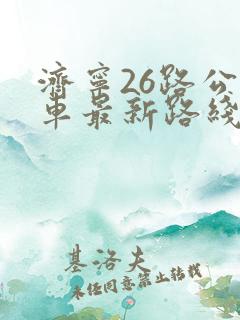 济宁26路公
车最新路线
基洛夫
未经同意禁止转载